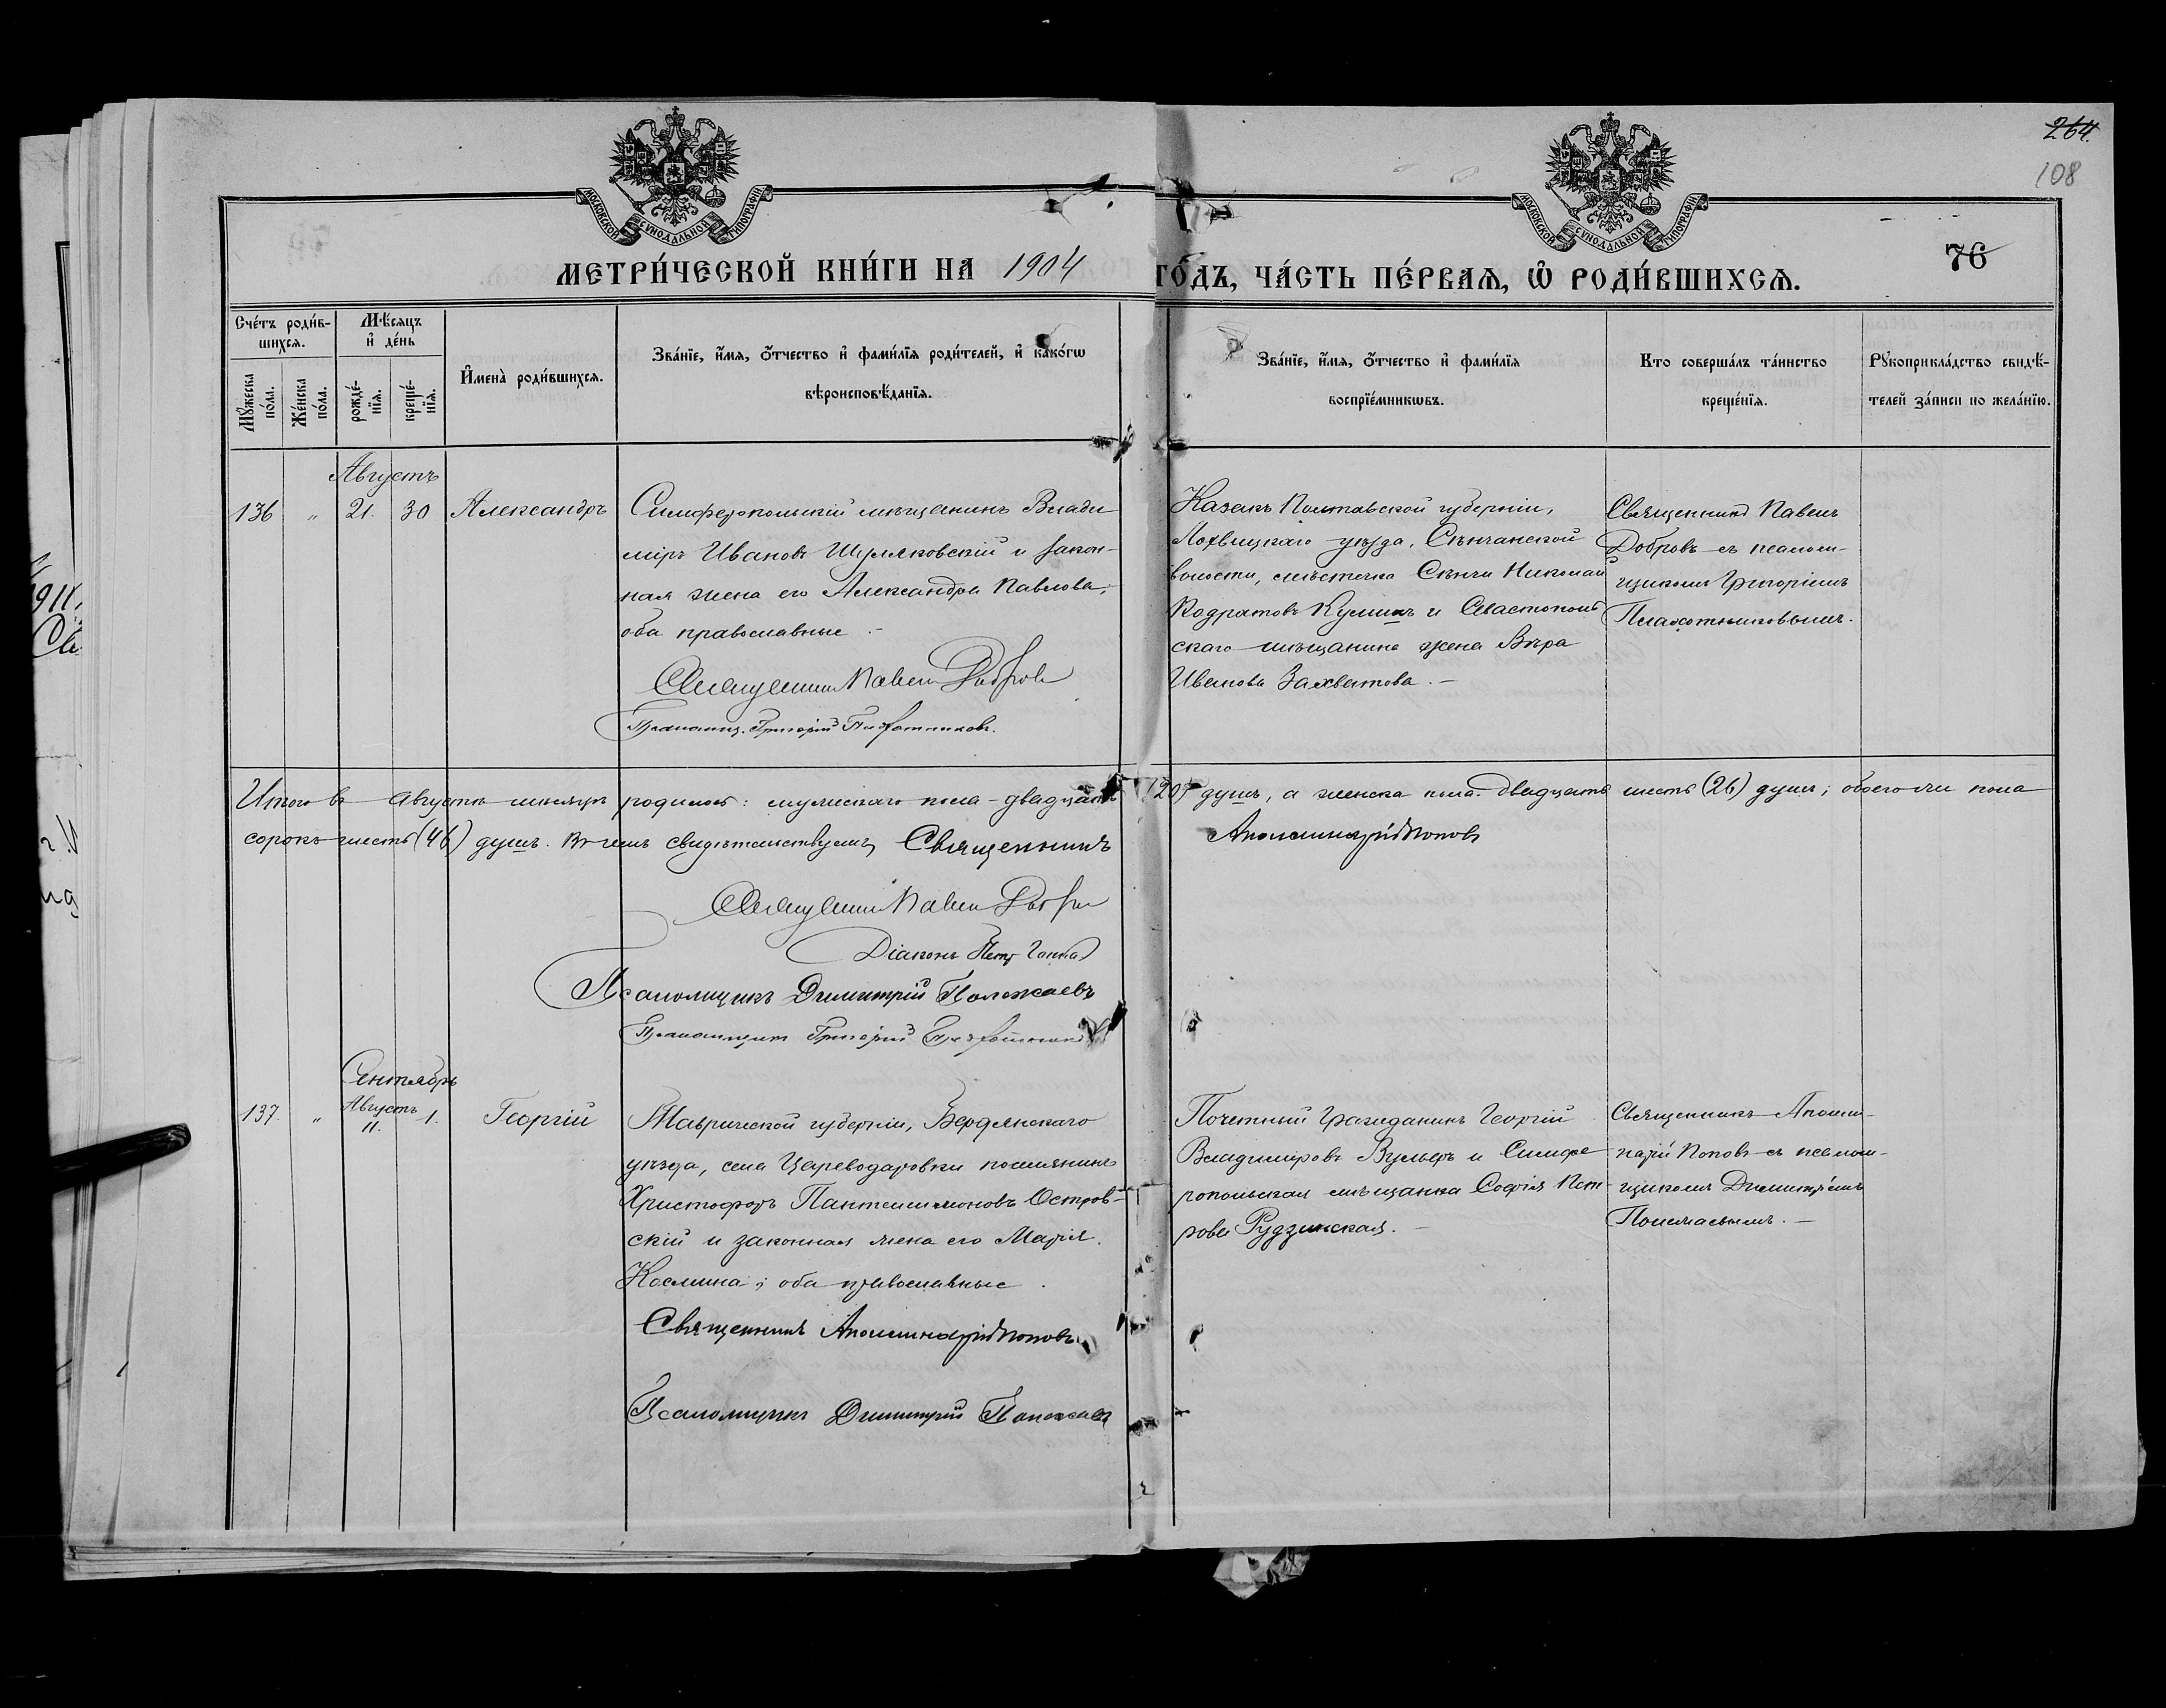 264.
108
76
МОСКОВСКОЙ СѴНОДАЛЬНОЙ ТИПОГРАФІИ
МОСКОВСКОЙ СѴНОДАЛЬНОЙ ТИПОГРАФІИ
МЕТРИ́ЧЕСКОЙ КНИ́ГИ НА 1904 ГО́ДЪ, ЧА́СТЬ ПЕ́РВАѦ, Ѡ РОДИ́ВШИХСѦ.
Сче́тъ роди́в-
шихсѧ.
Мꙋжеска по́ла.
Же́нска по́ла.
Мѣ́сѧцъ
и де́нь
рожде́-
нїѧ.
креще́-
нїѧ.
Имена̀ роди́вшихсѧ.
Зва́нїе, и́мѧ, о́тчество и фами́лїѧ роди́телей, и како́гѡ
вѣроисповѣ́данїѧ.
Зва́нїе, и́мѧ, о́тчество и фами́лїѧ
воспрїе́мникѡвъ.
Кто соверша́лъ та́инство
креще́нїѧ.
Рꙋкоприкла́дство свидѣ́-
телей за́писи по жела́нїю.
Августъ
136 " 21. 30 Александръ
Симферопольскій мѣщанинъ Влади
міръ Ивановъ Шуляковскій и закон-
ная жена его Александра Павлова;
оба православные.-
Священникъ Павелъ Добровъ
Псаломщ. Григорій Плахотниковъ.
Казакъ Полтавской губерніи,
Лохвицкаго уѣзда, Сѣнчанской
волости, мѣстечка Сѣнчи Николай
Кодратовъ и Севастополь
скаго мѣщанина жена Вѣра
Иванова Захватова.-
Священникъ Павелъ
Добровъ съ псалом-
щикомъ Григоріемъ
Плахотниковымъ.
Итого въ Августѣ мѣсяцѣ родилось: мужскаго пола - двадцать (20) душъ, а женска пола двадцать шесть (26) душъ; обоего-же пола
сорокъ шесть (46) душъ. Въ чемъ свидѣтельствуемъ Священникъ Аполлинарій Поповъ
Священникъ Павелъ Добровъ
Діаконъ Петръ
Псаломщикъ Димитрій Положаевъ
Псаломщикъ Григорій Плахотниковъ
Сентябрь
137. " Августъ 11. 1. Георгій
Таврической губерніи, Бердянскаго
уѣзда, села Цареводаровки поселянинъ
Христофоръ Пантелеимоновъ Остров-
скій и законная жена его Марія
Космина; оба православные.
Священникъ Аполлинарій Поповъ
Псаломщикъ Димитрій Положаевъ
Почетный Гражданинъ Георгій
Владиміровъ Вульферъ и Симфе
ропольская мѣщанка Софія Пет-
рова Рудзинская.-
Священникъ Аполли-
нарій Поповъ съ псалом-
щикомъ Димитріемъ